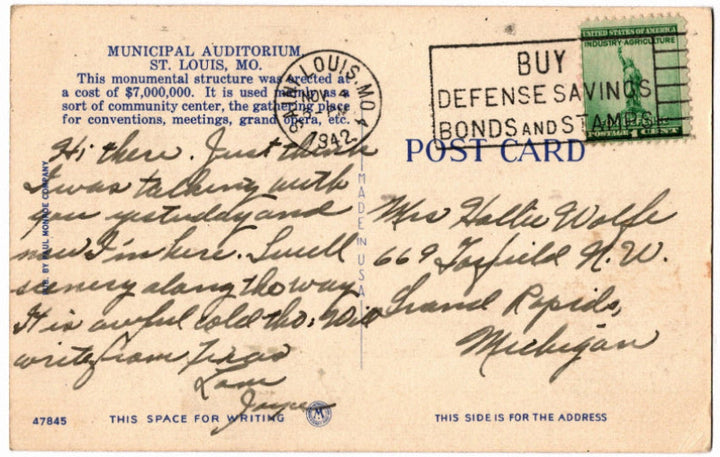 MUNICIPAL AUDITORIUM
ST. LOUIS, MO.
This monumental structure was erected at
a cost of $7,000,000. It is used mainly as a
sort of community center, the gathering place
for conventions, meetings, grand opera, etc.
SAINT LOUIS, MO. 4
NOV 4
PM
1942
BUY
DEFENSE SAVINGS
BONDS AND STAMPS
UNITED STATES OF AMERICA
INDUSTRY AGRICULTURE
POSTAGE 1 CENTS
POST CARD
Hi there. Just think
I was talking with
you yesterday and
now I'm here. Swell
scenery along the way
It is awful cold tho. Will
write from Texas
Love
Joyce
Mrs Hollie Wolfe
669 N.W.
Grand Rapids,
Michigan
PUB. BY PAUL MONROE COMPANY
MADE IN USA
47845
THIS SPACE FOR WRITING
M
THIS SIDE IS FOR THE ADDRESS